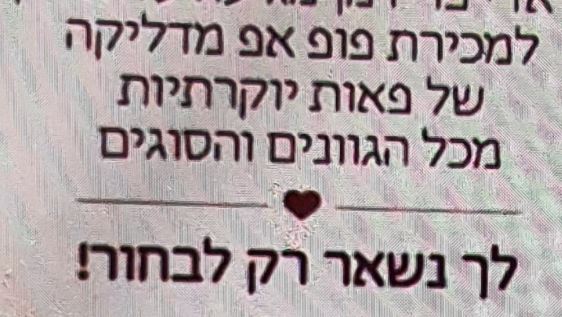 למכירת פופ אפ מדליקה
של פאות יוקרתיות
מכל הגוונים והסוגים
לך נשאר רק לבחור!